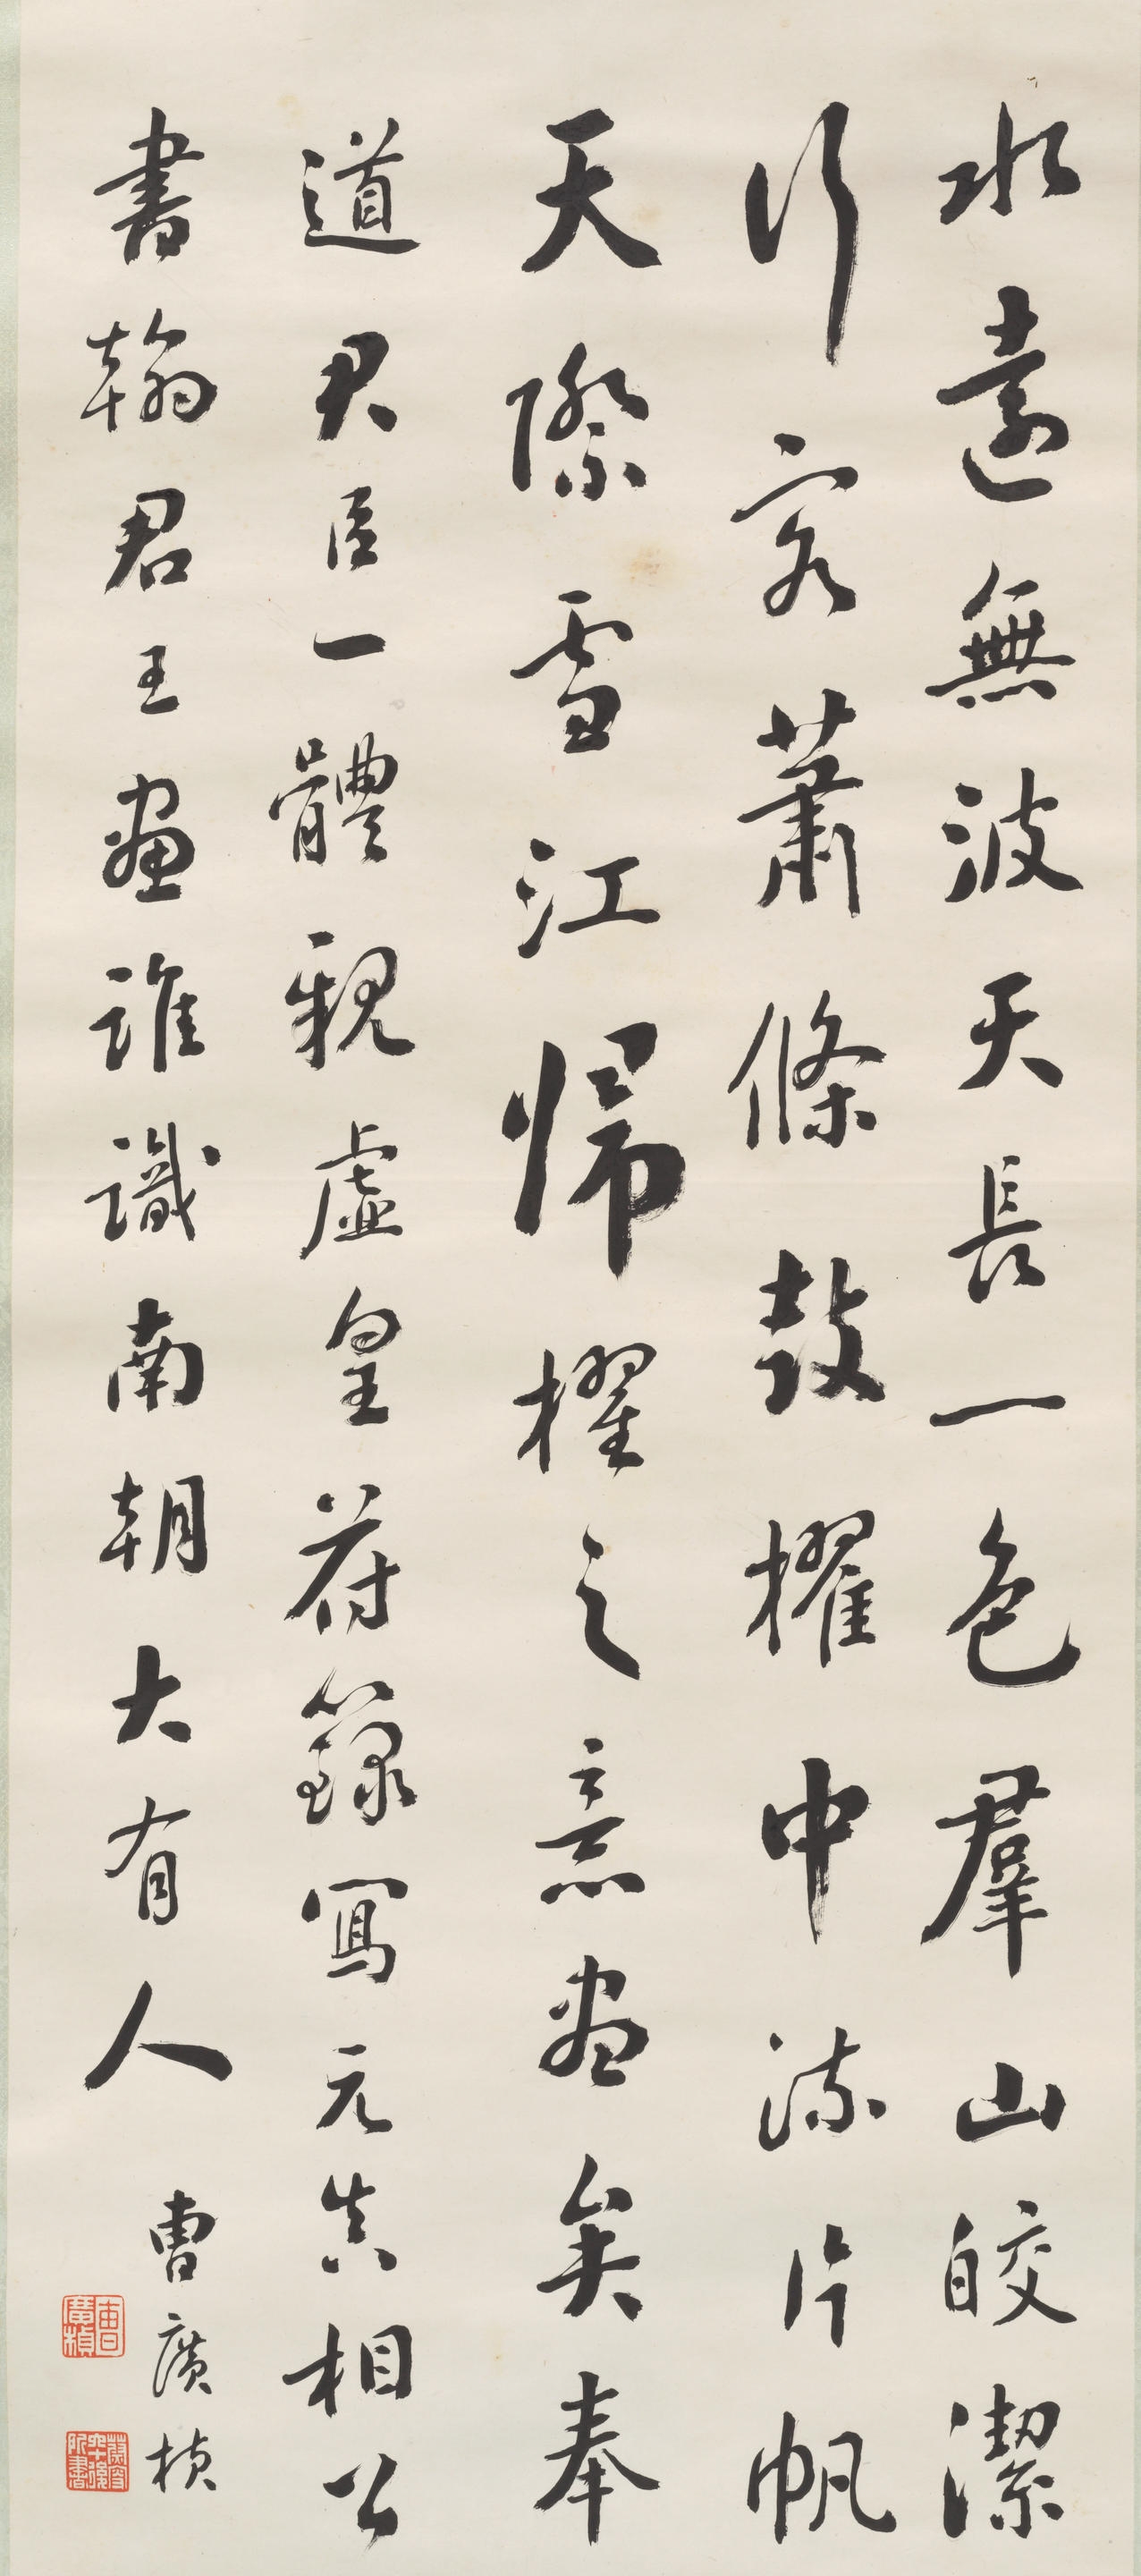 水遠無波天長一色羣山皎潔
行客蕭條鼓櫂中流片帆
天際雪江歸櫂之意盡矣奉
道君臣一體親虛皇符籙寫元真相公
書翰君王畫誰識南朝大有人
曹廣楨
曹廣楨